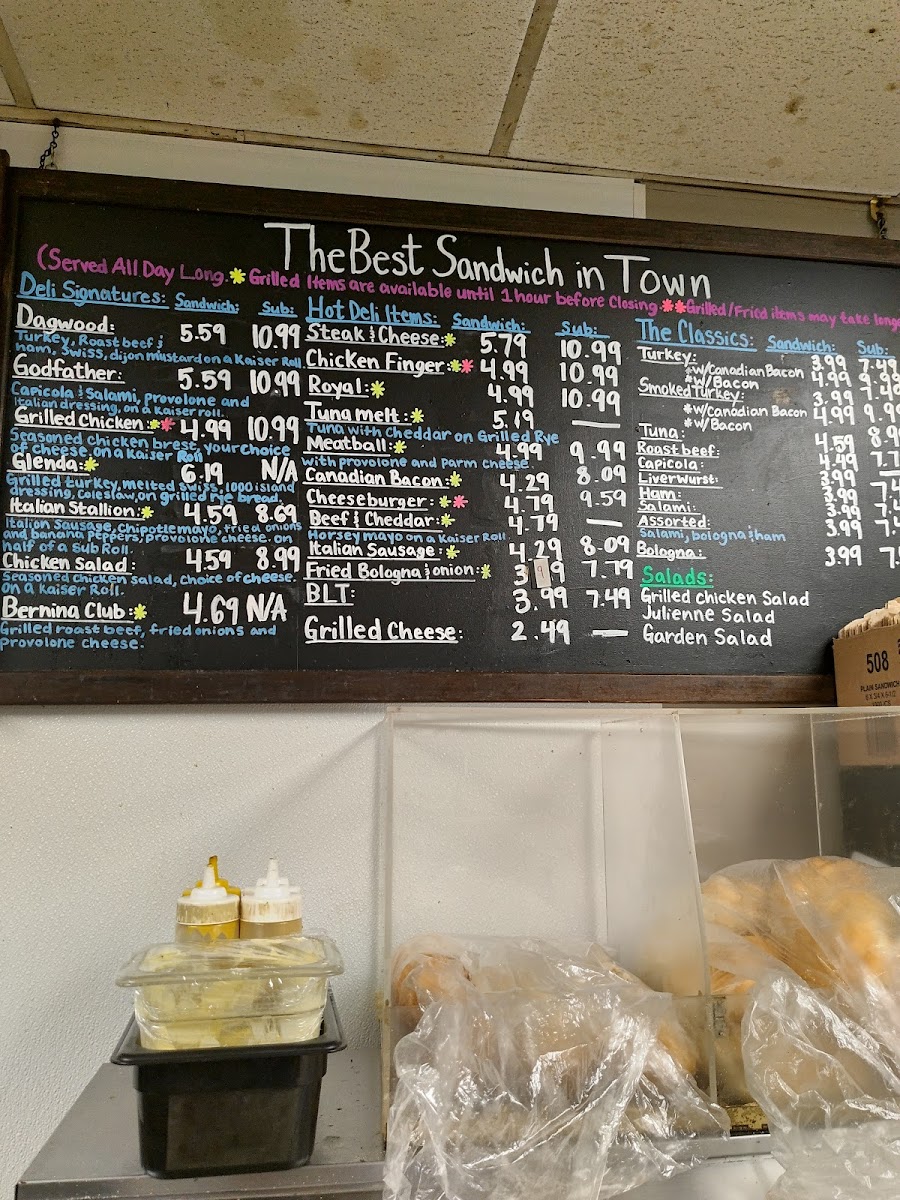 The Best Sandwich in Town
(Served All Day Long. *Grilled Items are available until 1 hour before Closing. **Grilled/Fried items may take longe
Deli Signatures: Sandwich: Sub:
Dagwood: 5.59 10.99
Turkey, Roast beef &
ham, Swiss, dijon mustard on a Kaiser Roll
Godfather: 5.59 10.99
Capicola & Salami, provolone and
Italian dressing, on a kaiser roll.
Grilled Chicken: ** 4.99 10.99
Seasoned chicken brest, your choice
of cheese, on a Kaiser Roll
Glenda: * 6.19 N/A
Grilled turkey, melted Swiss, 1000 island
dressing, coleslaw, on grilled rye bread.
Italian Stallion: * 4.59 8.69
Italian Sausage, chipotle mayo, fried onions
and banana peppers, provolone cheese. on
half of a sub Roll.
Chicken Salad: 4.59 8.99
Seasoned chicken salad, choice of cheese.
on a Kaiser Roll.
Bernina Club: * 4.69 N/A
Grilled roast beef, fried onions and
Provolone cheese.
Hot Deli Items: Sandwich: Sub:
Steak & Cheese: * 5.79 10.99
Chicken Finger: ** 4.99 10.99
Royal: * 4.99 10.99
Tuna melt: * 5.19 —
Tuna with Cheddar on Grilled Rye
Meatball: * 4.99 9.99
with provolone and parm cheese
Canadian Bacon: * 4.29 8.09
Cheeseburger: ** 4.79 9.59
Beef & Cheddar: * 4.79 —
Horsey mayo on a Kaiser Roll
Italian Sausage: * 4.29 8.09
Fried Bologna & onion: * 3.99 7.79
BLT: 3.99 7.49
Grilled Cheese: 2.49 —
The Classics: Sandwich: Sub:
Turkey: 3.99 7.49
*w/Canadian Bacon 4.99
*w/ Bacon
Smoked Turkey: 3.99
*w/Canadian Bacon 4.99
*w/Bacon
Tuna: 4.59
Roast beef: 4.49
Capicola: 3.99
Liverwurst: 3.99
Ham: 3.99
Salami: 3.99
Assorted: 3.99
Salami, bologna & ham
Bologna: 3.99
Salads:
Grilled chicken Salad
Julienne Salad
Garden Salad
508
PLAIN SANDWICH